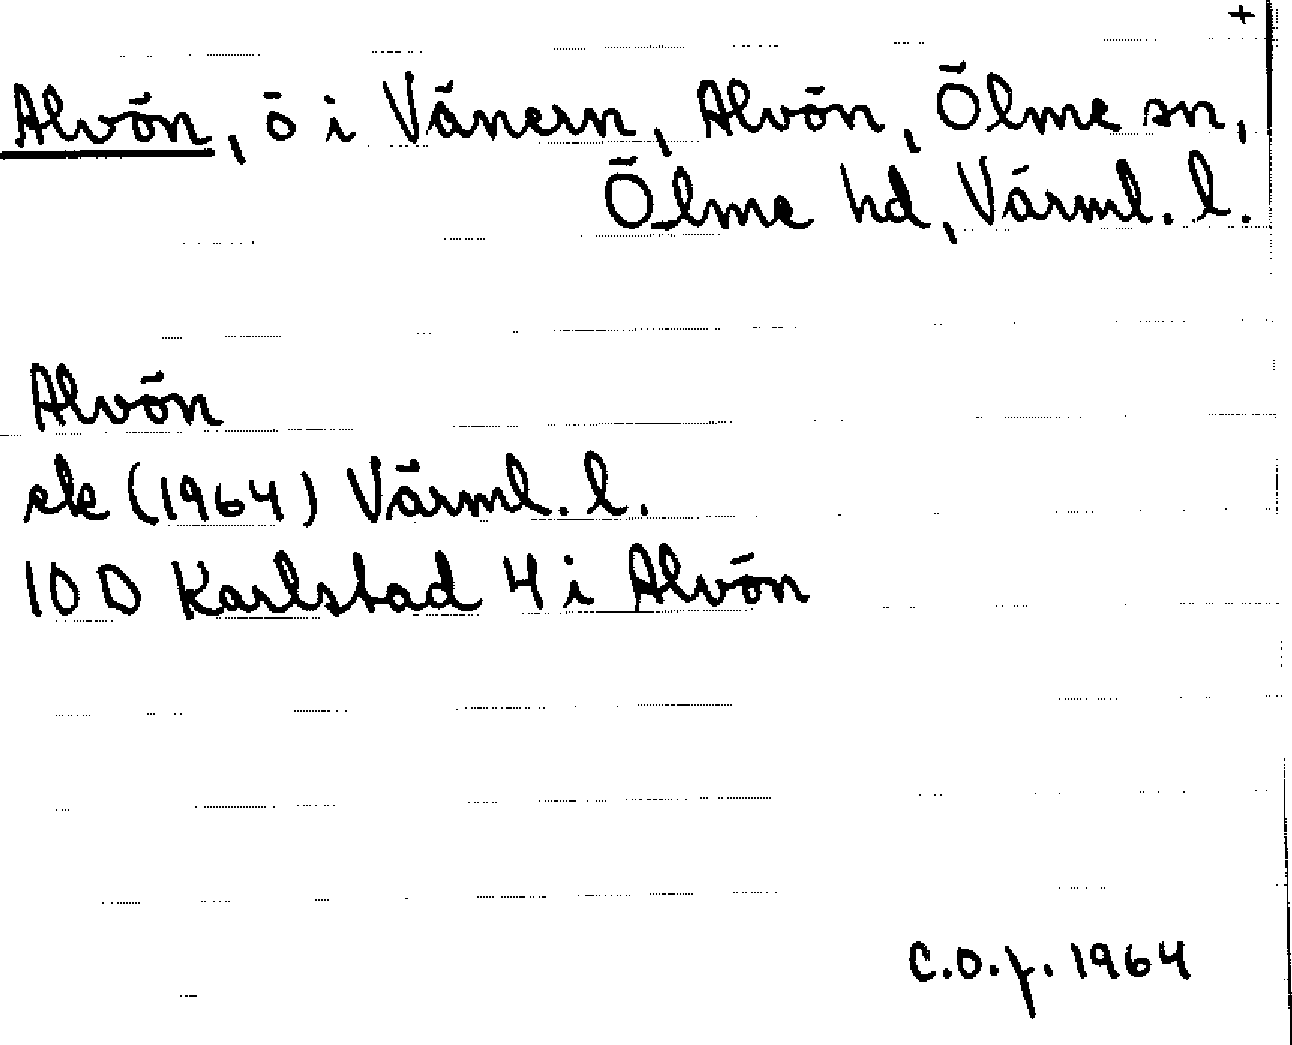 +
Alvön, ö i Vänern, Alvön, Ölme sn,
Ölme hd, Värml. l.
Alvön
ek (1964) Värml. l.
10 D Karlstad 4 i Alvön
C.O.f. 1964